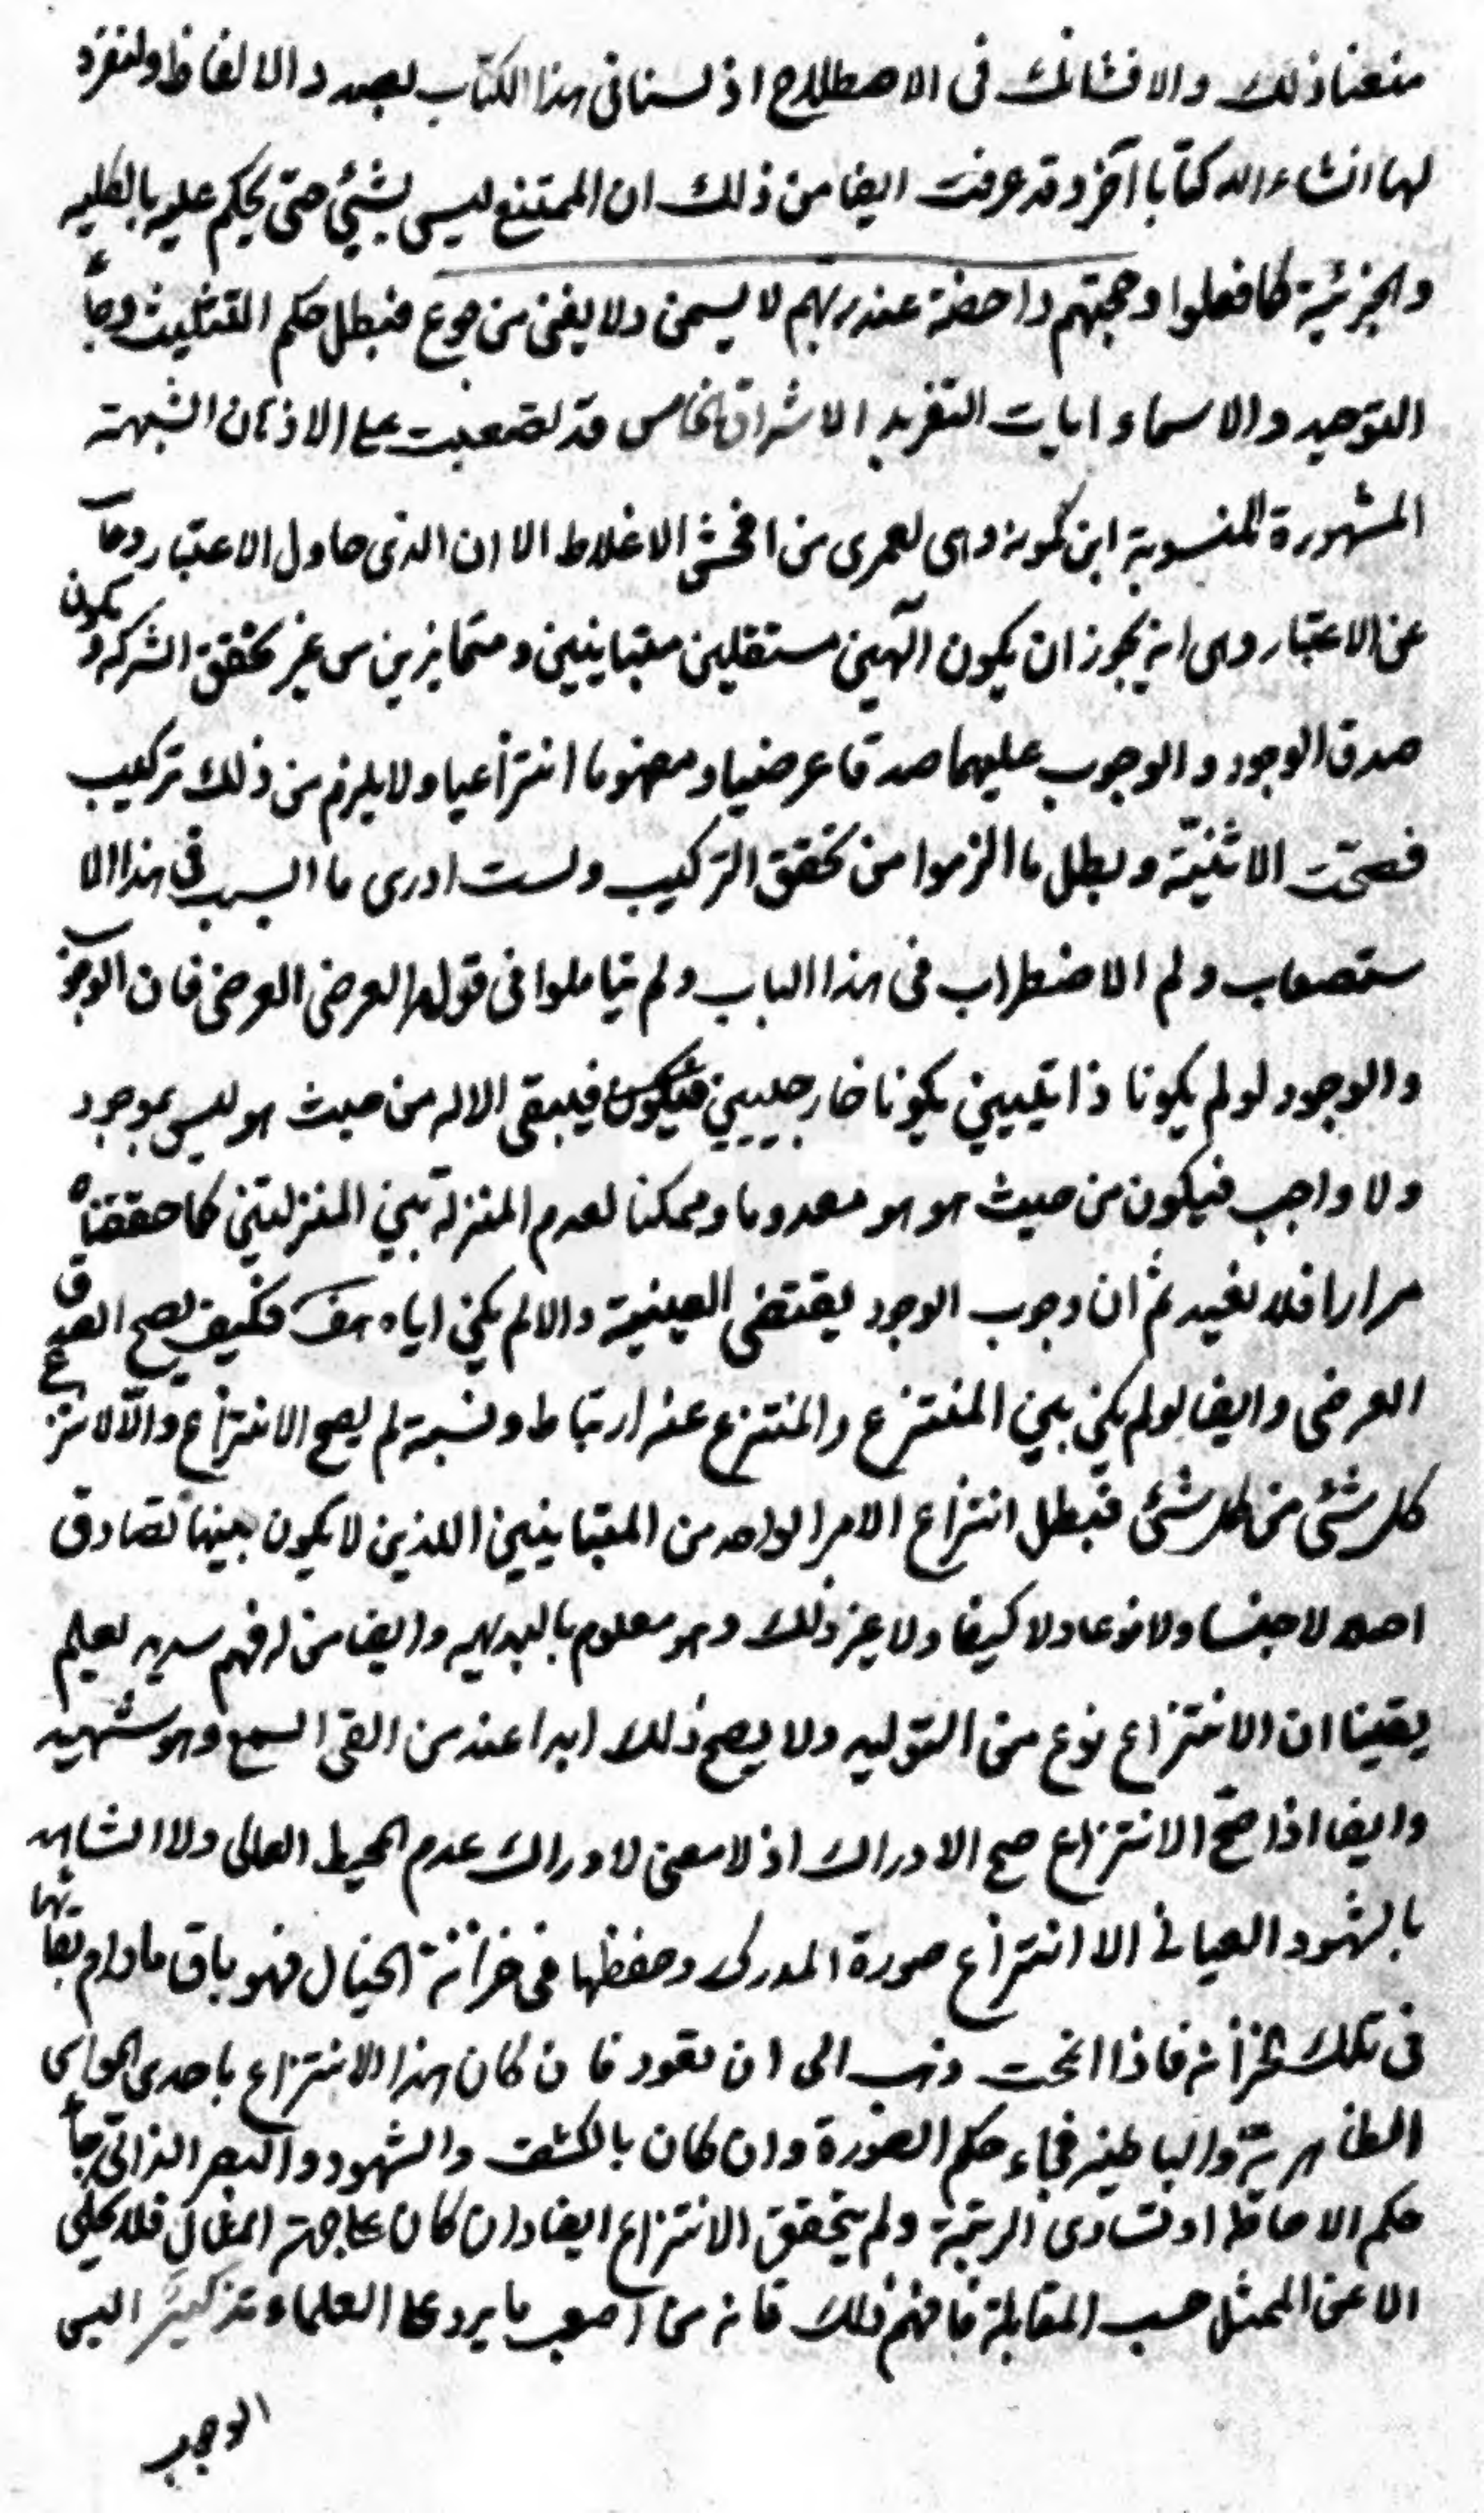 منعنا ذلك والا فشانك فى الاصطلاح اذ لسنا فى هذا الكتاب بصدد الالفاظ ولنفرد
لها انشاء الله كتابا آخر وقد عرفت ايضا من ذلك ان الممتنع ليس بشئ حتى يحكم عليه بالكلية
والجزئية كما فعلوا وحجتهم داحضة عند ربهم لا يسمن ولا يغنى من جوع فبطل حكم التثليث وجاء
التوحيد والاسماء ايات التفريد الاشراق الخامس قد تصعبت على الاذهان الشبهة
المشهورة المنسوبة ابن كمونه وهى لعمرى من افحش الاغلاط الا ان الذى حاول الاعتبار
عن الاعتبار وهى انه يجوز ان يكون الهين مستقلين متباينين ومتمايزين من غير تحقق الشركه ويكون
صدق الوجود والوجوب عليهما صدقا عرضيا ومفهوما انتزاعيا ولا يلزم من ذلك تركيب
فصحت الاثنيّة وبطل ما الزموا من تحقق التركيب ولست ادرى ما السبب فى هذا الا
ستصعاب ولم الاضطراب فى هذا الباب ولم يتاملوا فى قولهم العرضى العرضى فان الوجوب
والوجود لو لم يكونا ذاتيين يكونا خارجيين فيبقى الاله من حيث هو ليس بموجود
ولا واجب فيكون من حيث هو هو معدوما وممكنا لعدم المنزلة بين المنزلتين كما حققناه
مرارا فلا نعيد ثم ان وجوب الوجود يقتضى العينية والا لم يكن اياه هف فكيف يصح الصدق
العرضى وايضا لو لم يكن بين المنتزع والمنتزع عنه ارتباط ونسبة لم يصح الانتزاع والّا لانتزع
كل شئ من كل شئ فبطل انتزاع الامر الواحد من المتباينين اللذين لا يكون بينهما تصادق
اصلا لا جنسا ولا نوعا ولا كيفا ولا غير ذلك وهو معلوم بالبديهه وايضا من له فهم سديد يعلم
يقينا ان الانتزاع نوع من التوليد ولا يصح ذلك ابدا عند من القى السمع وهو شهيد
وايضا اذا صحّ الانتزاع صح الادراك اذ لا معنى لادراك عدم المحيط العالى ولا الشاهد
بالشهود العيانى الا انتزاع صورة المدرك وحفظها فى خزانة الخيال فهو باق مادام بقائها
فى تلك الخزانه فاذا انمحت ذهب الى ان تعود فان كان هذا الانتزاع باحدى الحواس
الظاهريّة والباطنيه فجاء حكم الصورة وان كان بالكشف والشهود والبصر الذاتى جاء
حكم الاحاطه او تساوى الرتبة ولم يتحقق الانتزاع ايضا وان كان على جهة المثال فلا يحكى
الا عن الممثل حسب المقابلة فافهم ذلك فانه من اصعب ما يرد على العلماء تذكير اليس
الوجوب